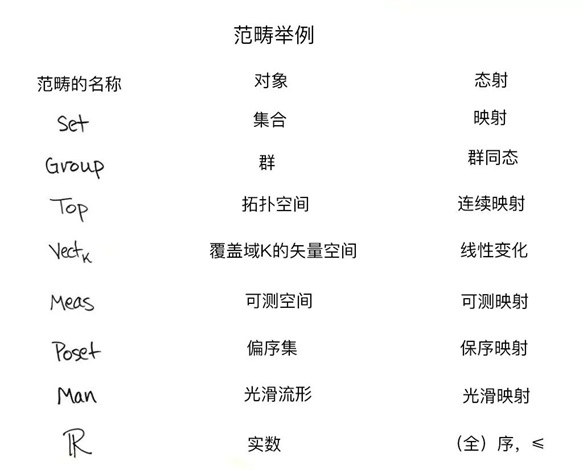 范畴举例
范畴的名称 对象 态射
Set 集合 映射
Group 群 群同态
Top 拓扑空间 连续映射
Vect_K 覆盖域K的矢量空间 线性变化
Meas 可测空间 可测映射
Poset 偏序集 保序映射
Man 光滑流形 光滑映射
ℝ 实数 （全）序，≤